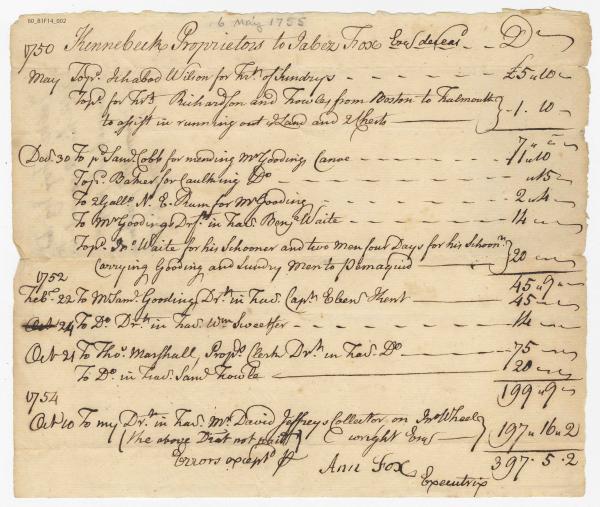 80_B1F14_002
6 May 1755
1750 Kennebeck Proprietors to Jabez Fox Esqr deceasd Dr
May To pd. Ichabod Wilson for Frt. of Sundrys £5 " 10 -
To pd. for Frt. Richardson and Fowles from Boston to Falmouth
to assist in running out ye Land and 2 Chests } - 1 . 10 -
7 " - " -
Decr. 30 To pd. Saml. Cobb for mending Mr Gooding Canoe 1 " 10
To pd. Baker for Caulking Do " 15 -
To 2 Galls. N. E. Rum for Mr Gooding 2 " 4 -
To Mr Goodings Drft. in favr. Benja Waite 14 -
To pd. Jno. Waite for his Schooner and two Men four Days for his Schoonr.
Carrying Gooding and Sundry Men to Pemaquid } 20 -
45 " 9 -
1752
Feby. 22 To Mr Saml. Gooding Drft. in favr. Capt. Eben. Kent 45 -
Oct 24 To Do Drft. in favr. Wm Sweetser 14 -
Oct 21 To Thos. Marshall, Props. Clerk Drft. in favr. Do 75 -
To Do. in favr. Saml. Fowle 20 -
199 " 9 -
1754
Oct 10 To my Drft. in favr. Mr. David Jeffreys Collector on Jno Wheel
(the above Drat not paid) wright Esqr } 197 " 16 " 2
Errors exceptd. pr 397 . 5 . 2
Ann Fox
Executrix